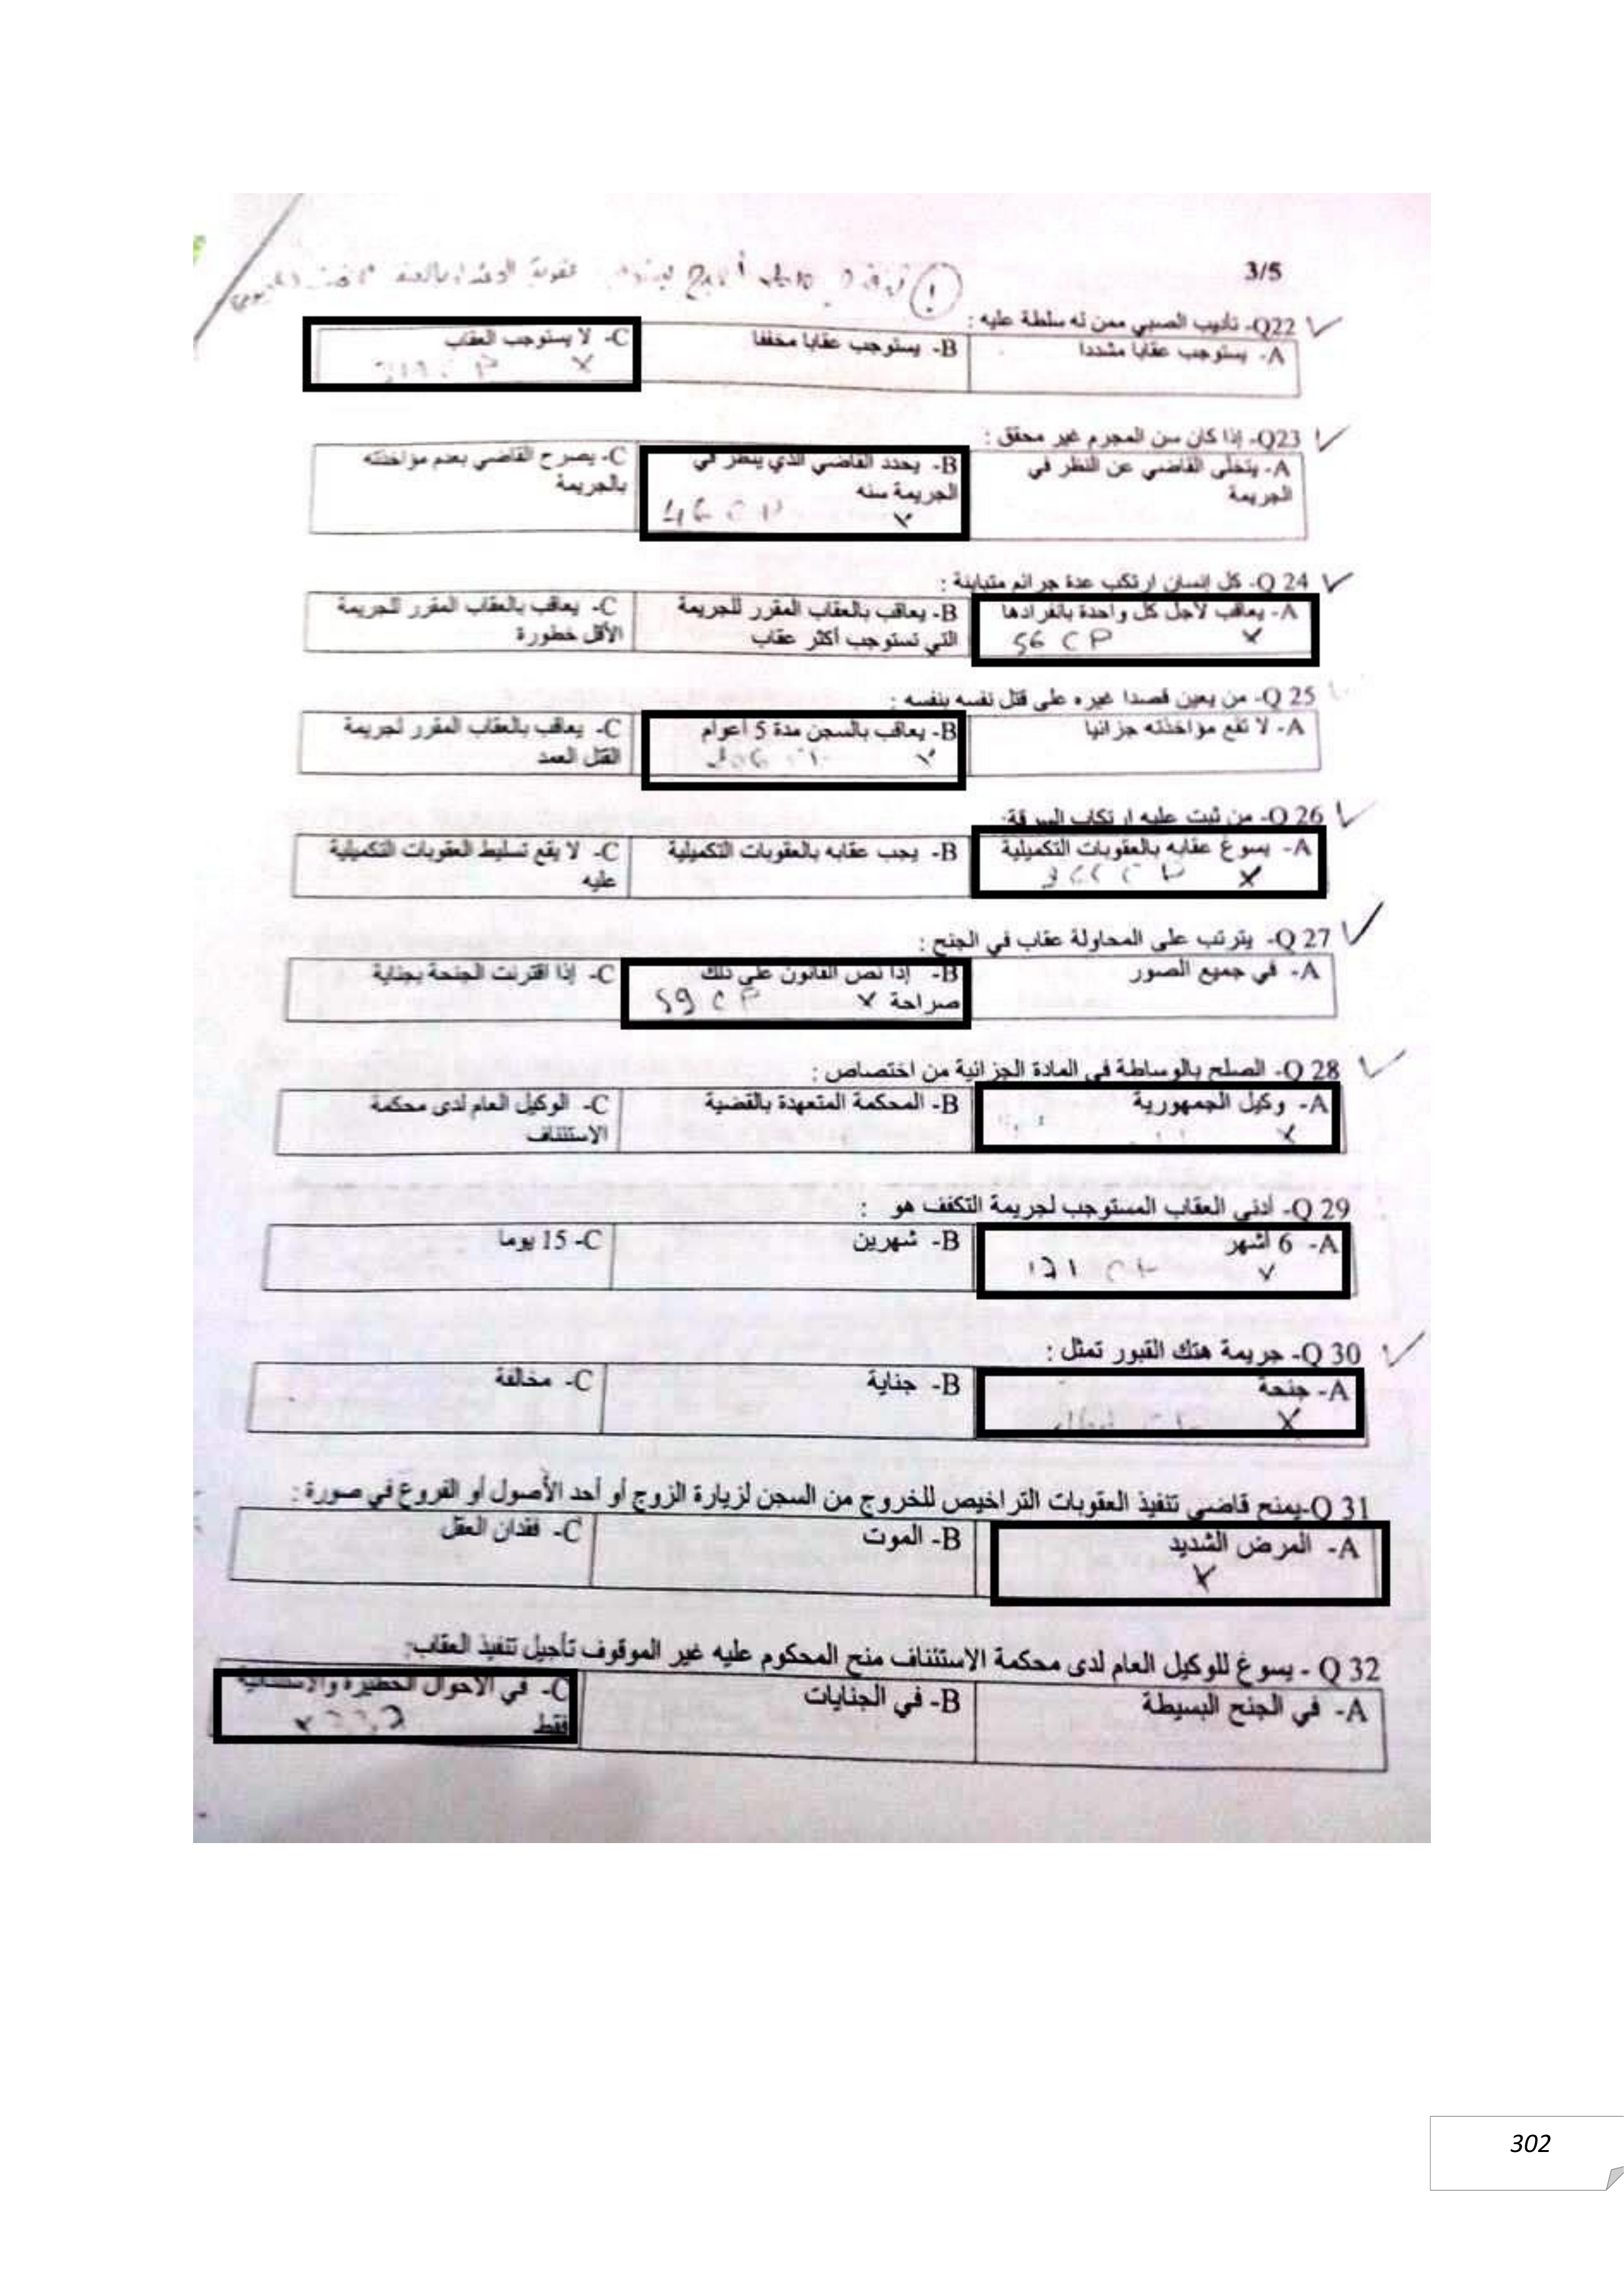 3/5
Q22- تأديب الصبي ممن له سلطة عليه :
A- يستوجب عقابا مشددا
B- يستوجب عقابا مخففا
C- لا يستوجب العقاب
Q23- إذا كان سن المجرم غير محقق :
A- يتخلى القاضي عن النظر في
الجريمة
B- يحدد القاضي الذي ينظر في
الجريمة سنه
46 CP
C- يصرح القاضي بعدم مؤاخذته
بالجريمة
Q 24- كل إنسان ارتكب عدة جرائم متباينة :
A- يعاقب لأجل كل واحدة بانفرادها
56 CP
B- يعاقب بالعقاب المقرر للجريمة
التي تستوجب أكثر عقاب
C- يعاقب بالعقاب المقرر للجريمة
الأقل خطورة
Q 25- من يعين قصدا غيره على قتل نفسه بنفسه :
A- لا تقع مؤاخذته جزائيا
B- يعاقب بالسجن مدة 5 أعوام
C- يعاقب بالعقاب المقرر لجريمة
القتل العمد
Q 26- من ثبت عليه ارتكاب السرقة:
A- يسوغ عقابه بالعقوبات التكميلية
B- يجب عقابه بالعقوبات التكميلية
C- لا يقع تسليط العقوبات التكميلية
عليه
Q 27- يترتب على المحاولة عقاب في الجنح :
A- في جميع الصور
B- إذا نص القانون على ذلك
صراحة
59 CP
C- إذا اقترنت الجنحة بجناية
Q 28- الصلح بالوساطة في المادة الجزائية من اختصاص :
A- وكيل الجمهورية
B- المحكمة المتعهدة بالقضية
C- الوكيل العام لدى محكمة
الاستئناف
Q 29- أدنى العقاب المستوجب لجريمة التكفف هو :
A- 6 أشهر
171 CP
B- شهرين
C- 15 يوما
Q 30- جريمة هتك القبور تمثل :
A- جنحة
B- جناية
C- مخالفة
Q 31-يمنح قاضي تنفيذ العقوبات التراخيص للخروج من السجن لزيارة الزوج أو أحد الأصول أو الفروع في صورة :
A- المرض الشديد
B- الموت
C- فقدان العقل
Q 32 - يسوغ للوكيل العام لدى محكمة الاستئناف منح المحكوم عليه غير الموقوف تأجيل تنفيذ العقاب:
A- في الجنح البسيطة
B- في الجنايات
C- في الأحوال الخطيرة والاستثنائية
فقط
302